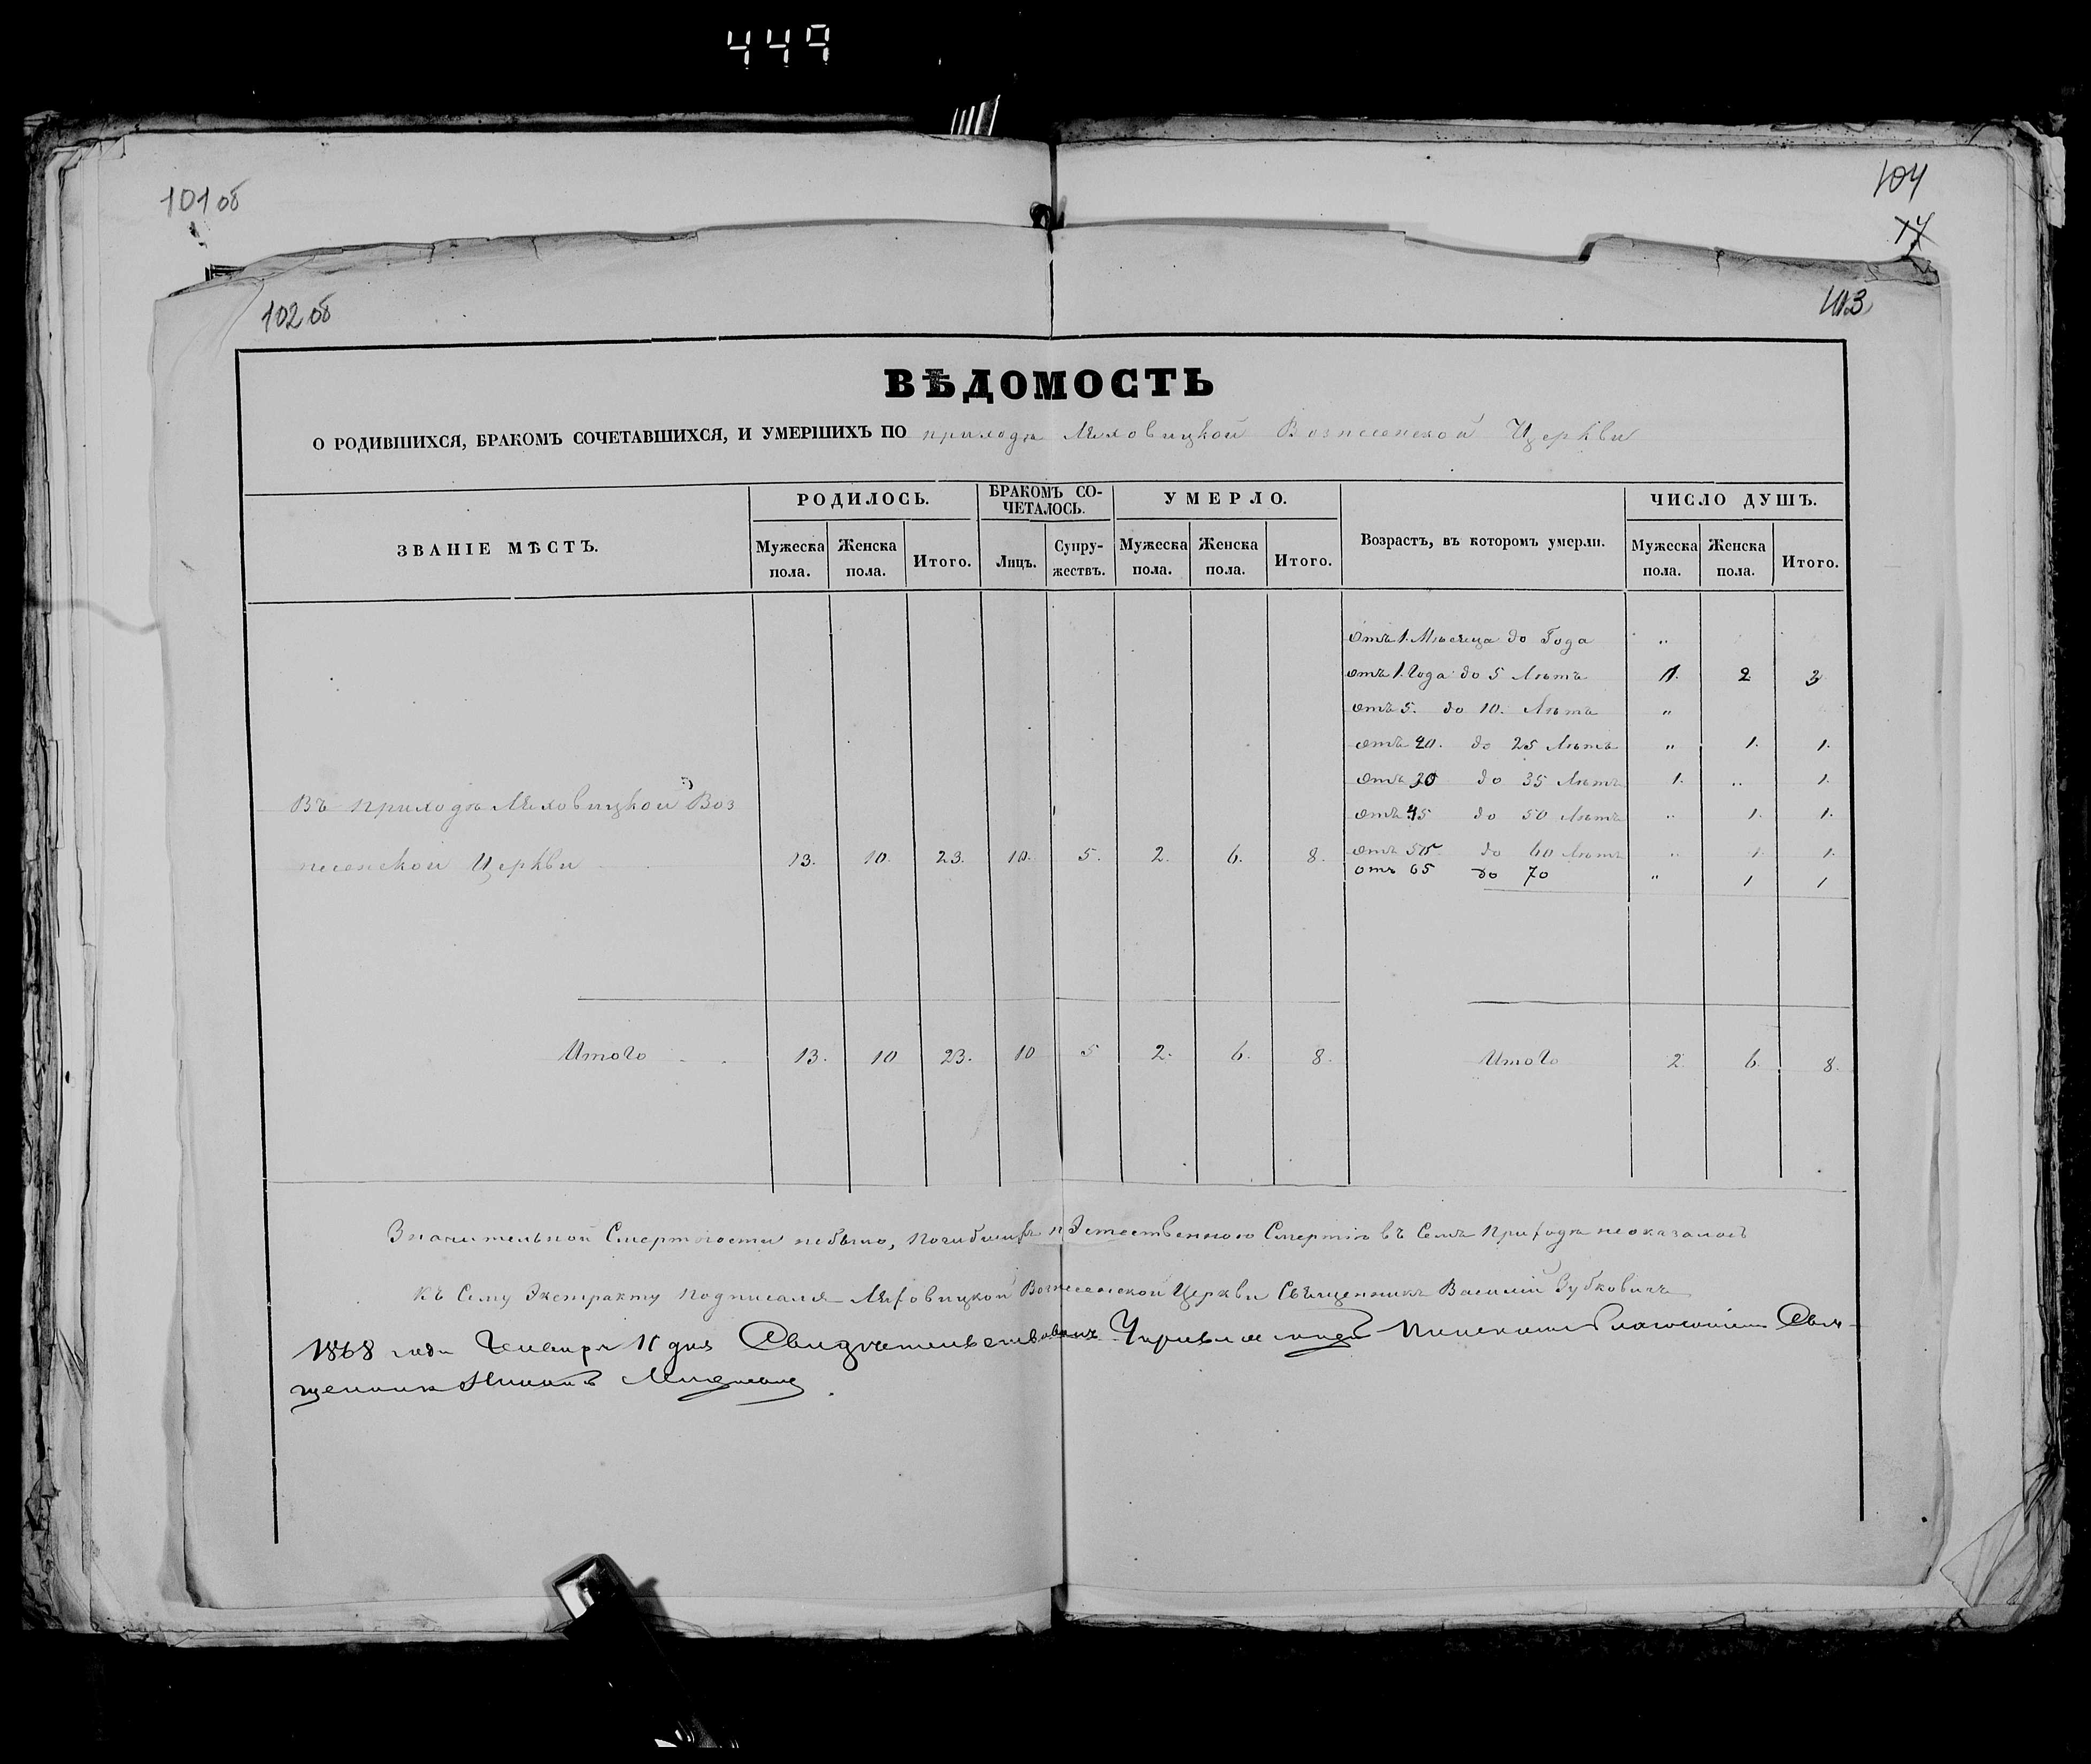 449
101 об
104
14
102 об
103
ВѢДОМОСТЬ
О РОДИВШИХСЯ, БРАКОМЪ СОЧЕТАВШИХСЯ, И УМЕРШИХЪ ПО приходѣ Вознесенской Церкви
ЗВАНІЕ МѢСТЪ. РОДИЛОСЬ. БРАКОМЪ СОЧЕТАЛОСЬ. УМЕРЛО. Возрастъ, въ которомъ умерли. ЧИСЛО ДУШЪ.
Мужеска пола. Женска пола. Итого. Лицъ. Супружествъ. Мужеска пола. Женска пола. Итого. Мужеска пола. Женска пола. Итого.
отъ 1. Мѣсяца до Года "
отъ 1. Года до 5 Лѣтъ 1. 2 3
отъ 5. до 10. Лѣтъ "
отъ 20. до 25 Лѣтъ " 1. 1.
отъ 30 до 35 Лѣтъ 1. " 1.
Въ приходѣ Воз
отъ 45 до 50 Лѣтъ " 1. 1.
несенской Церкви 13. 10. 23. 10. 5. 2. 6. 8. отъ 55 до 60 Лѣтъ " 1. 1.
отъ 65 до 70 " 1 1
Итого 13. 10 23. 10 5 2. 6. 8. Итого 2. 6. 8.
Значительной Смертности небыло, погибшихъ Смертію въ Семъ Приходѣ неоказалось
Къ Сему Экстракту подписался Вознесенской Церкви Священникъ Василій Зубковичъ
1868 года Генваря дня Свидѣтельствовалъ Свя-
щенникъ